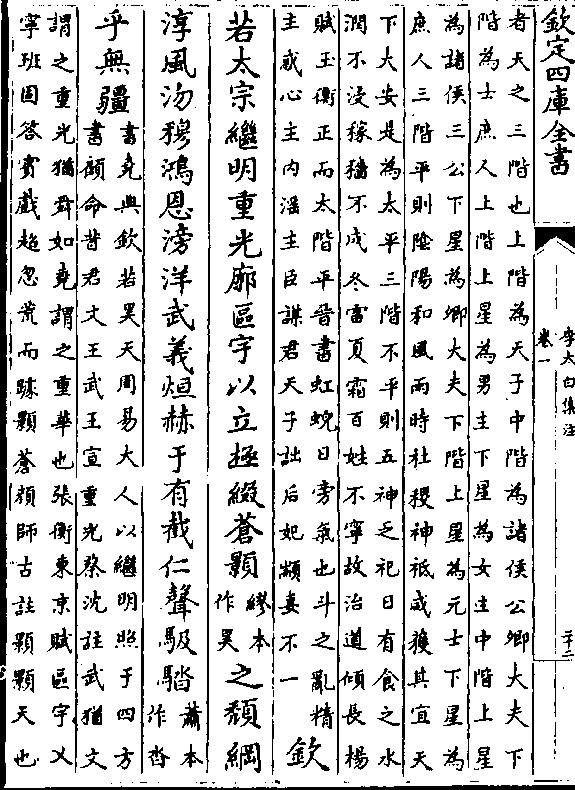 欽定四庫全書
李太白集注
卷一
二十二
者天之三階也上階為天子中階為諸侯公卿大夫下
階為士庶人上階上星為男主下星為女主中階上星
為諸侯三公下星為卿大夫下階上星為元士下星為
庶人三階平則陰陽和風雨時社稷神祇咸獲其宜天
下大安是為太平三階不平則五神乏祀日有食之水
潤不浸稼穡不成冬雷夏霜百姓不寧故治道傾長楊
賦玉衡正而太階平晉書虹蜺日旁氣也斗之亂精
主惑心主内淫主臣謀君天子詘后妃顓妻不一
欽
若太宗繼明重光廓區宇以立極綴蒼顥
繆本
作昊
之頹綱
淳風沕穆鴻恩滂洋武義烜赫于有截仁聲馺騖
蕭本
作沓
乎無疆
書堯典欽若昊天周易大人以繼明照于四方
書顧命昔君文王武王宣重光蔡沈註武猶文
謂之重光猶舜如堯謂之重華也張衡東京賦區宇乂
寧班固答賓戲超忽荒而躆顥蒼顏師古註顥顥天也